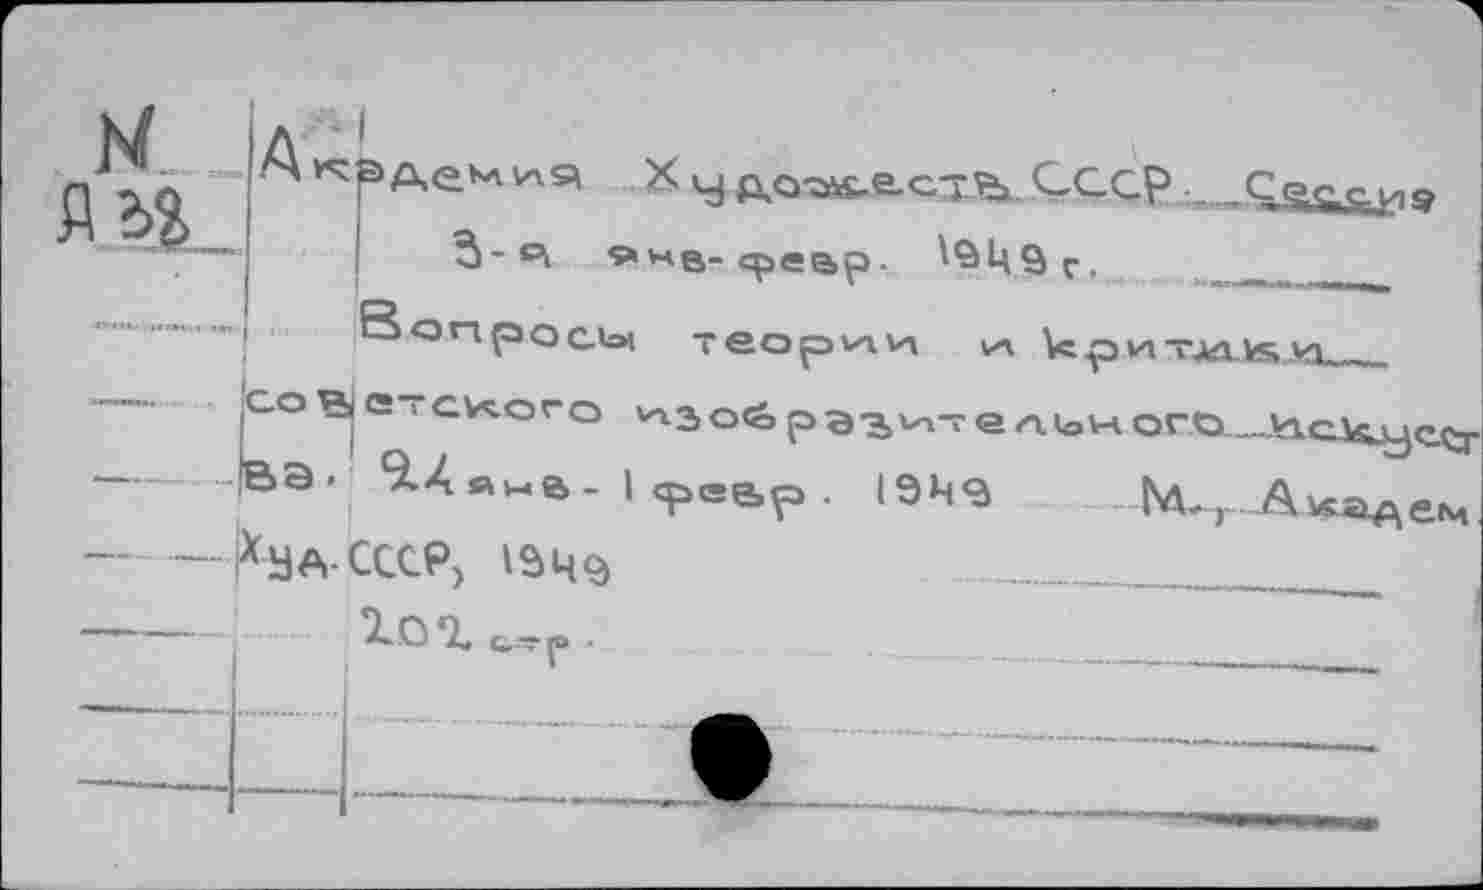 N Академия Художеств СССР. Сессия
3-я янв-февр. 1949 г.
Вопросы теории и критики
советского изобразительного искусст
ва. 24 янв - 1 февр. 1949 М., Академ.
Худ. СССР, 1949
202 стр.